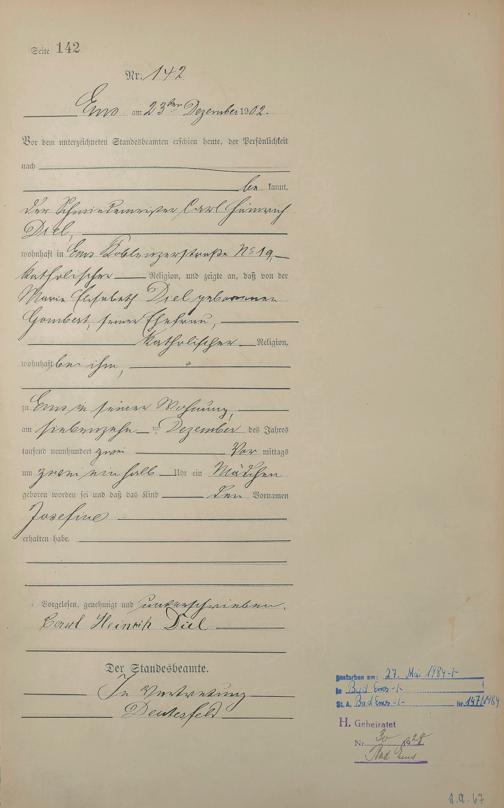 Seite 142
Nr. 142
Ems am 23ten Dezember 1902.
Vor dem unterzeichneten Standesbeamten erschien heute, der Persönlichkeit
nach
be kannt,
der Schmiedemeister Carl Heinrich
Diel,
wohnhaft in Ems Koblenzerstraße No 19,
katholischer Religion, und zeigte an, daß von der
Maria Elisabeth Diel geborenen
Gombert, seiner Ehefrau,
katholischer Religion,
wohnhaft bei ihm,
zu Ems in seiner Wohnung,
am siebenzehn ten Dezember des Jahres
tausend neunhundert zwei Vor mittags
um zwei einhalb Uhr ein Mädchen
geboren worden sei und daß das Kind den Vornamen
Josefine
erhalten habe.
Vorgelesen, genehmigt und unterschrieben.
Carl Heinrich Diel
Der Standesbeamte.
In Vertretung
gestorben am: 27. Mai 1984
in Bad Ems
St. A. Bad Ems Nr. 147/1984
H. Geheiratet
Nr. 30 1928
Bad Ems